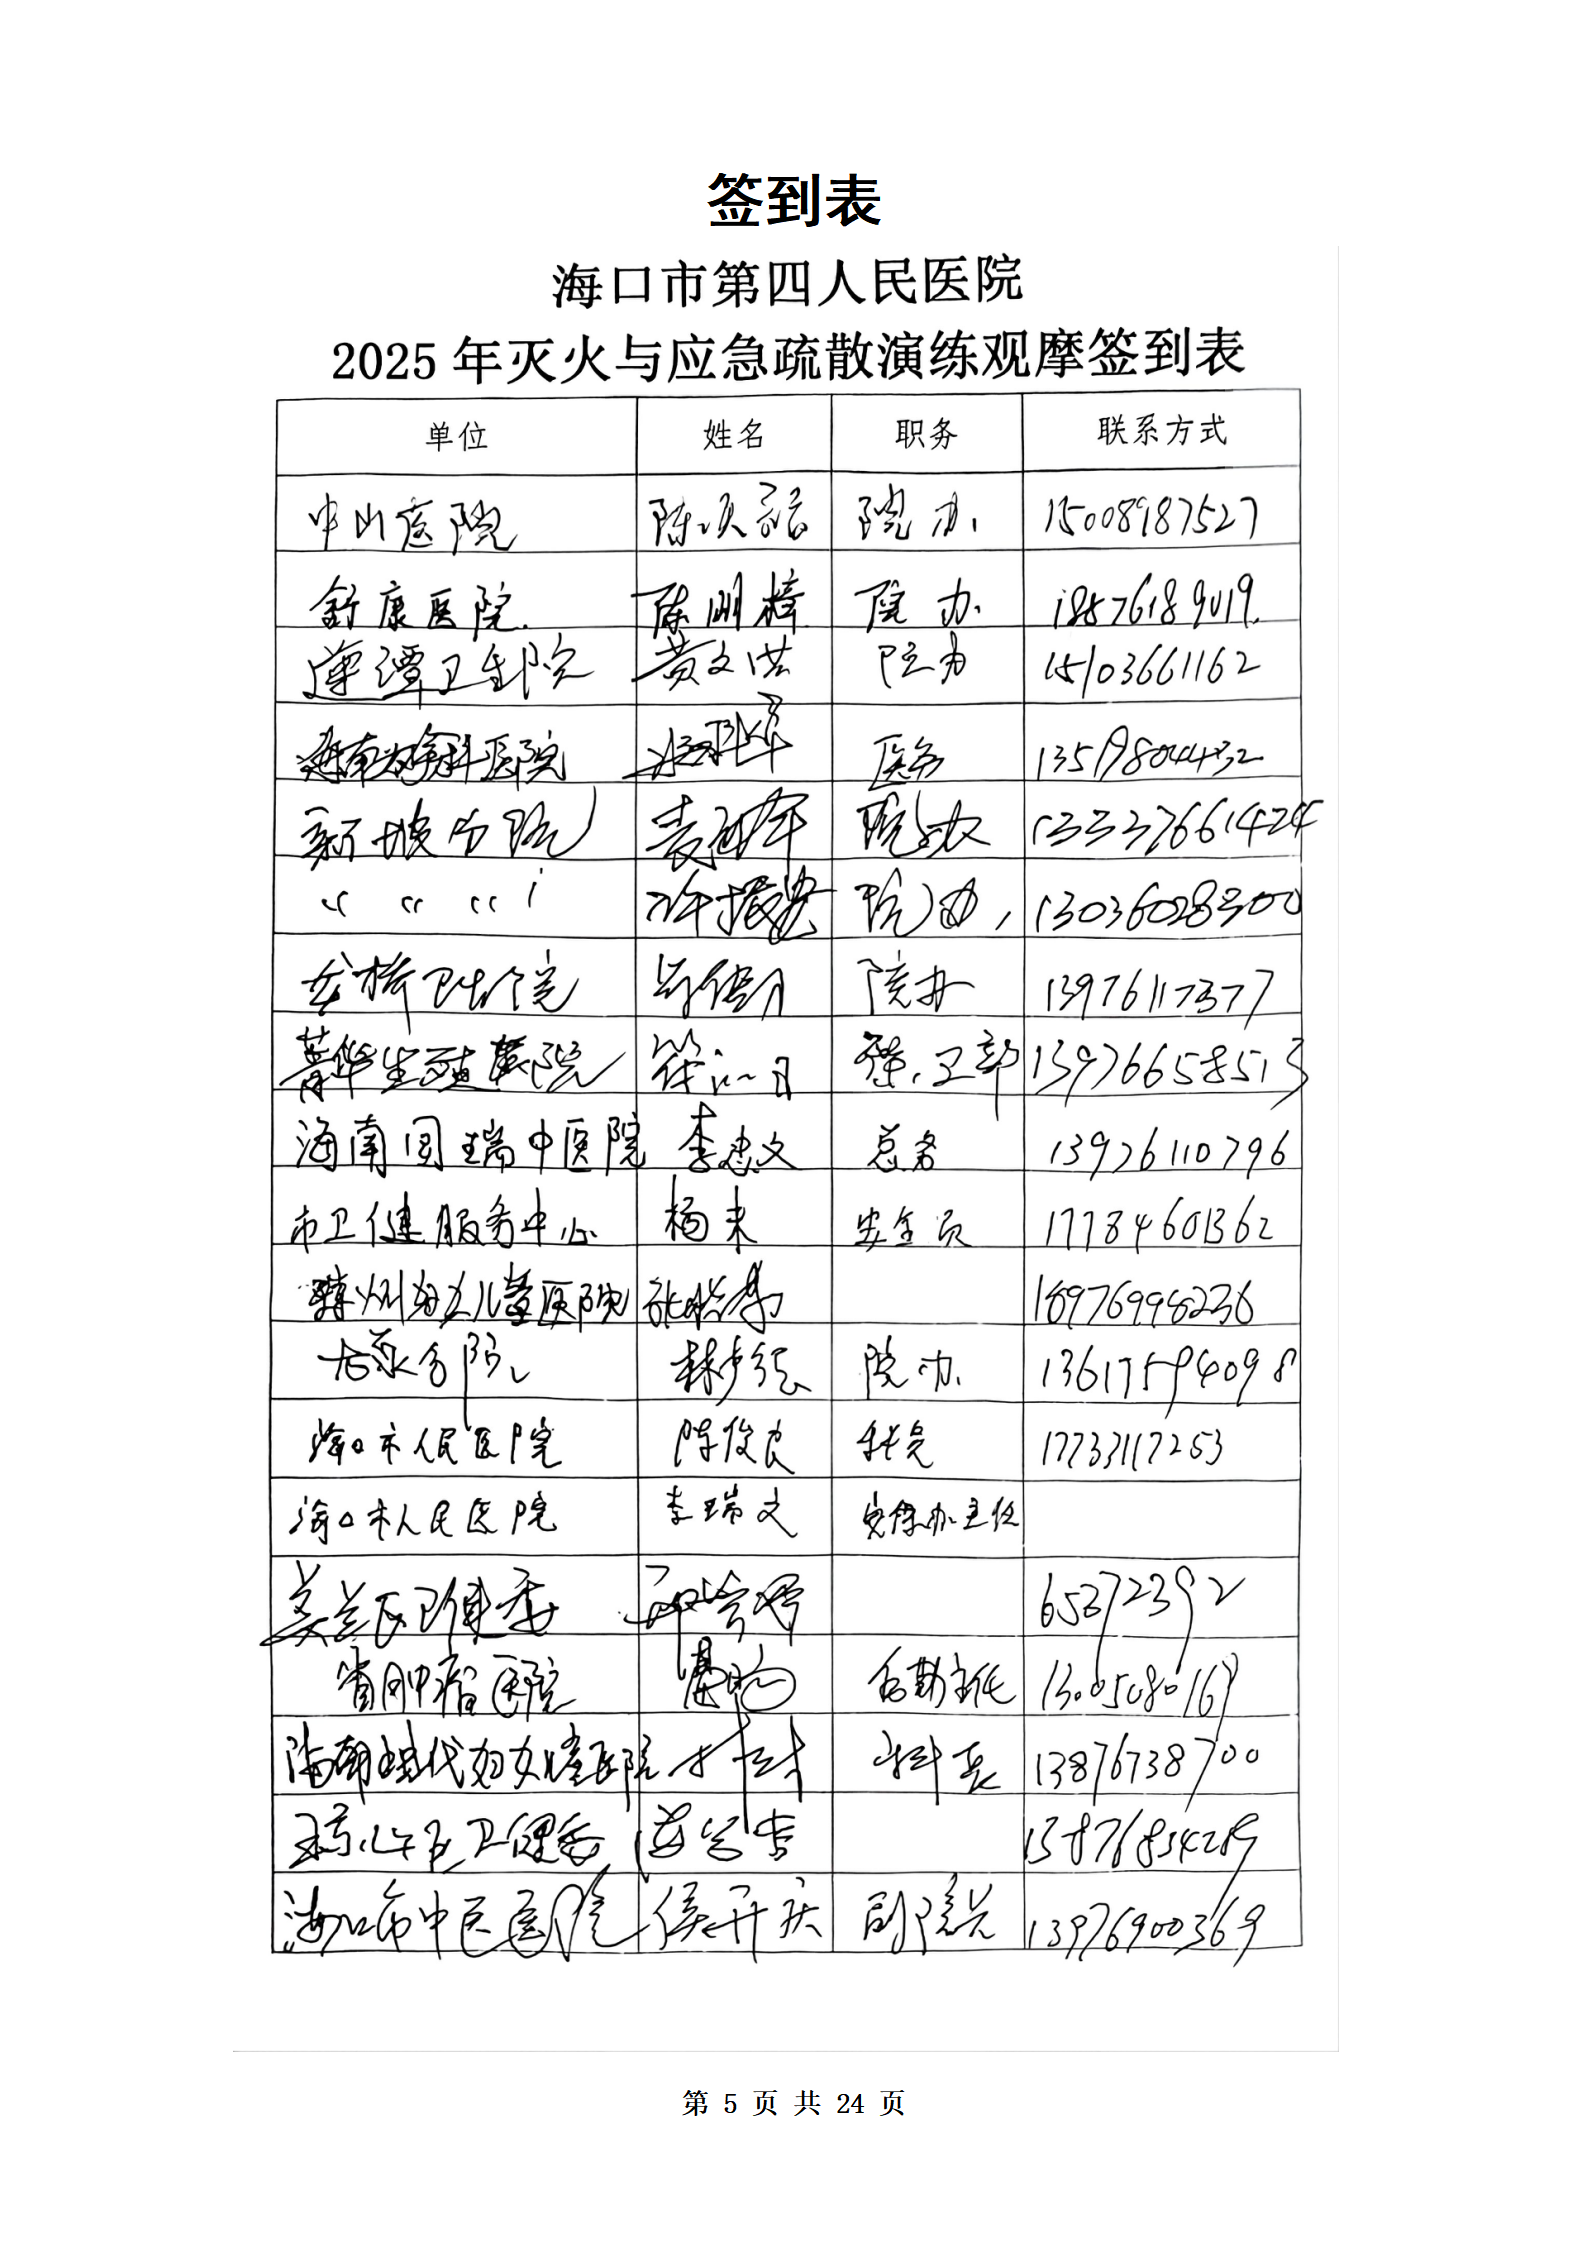 签到表
海口市第四人民医院
2025年灭火与应急疏散演练观摩签到表
单位 姓名 职务 联系方式
中山医院 陈 院办 15008987527
舒康医院 陈明樟 院办 18876189019
潭卫生院 黄文 院办 15103661162
海南 科医院 医务 13519804432
新坡分院 院办 13337661424
〃 〃 〃 许振 院办 13036028300
龙桥卫生院 院办 13976117377
菁华生殖医院 13976658513
海南国瑞中医院 李忠文 总务 13926110796
市卫健服务中心 杨未 安全员 17784601362
琼州妇女儿童医院 张 18976998236
龙泉分院 林 院办 13617594098
海口市人民医院 陈俊良 科员 17733117253
海口市人民医院 李瑞文 安保办主任
美兰区卫健委 65372392
省肿瘤医院 后勤主任 13005080169
海南现代妇女儿童医院 科长 13876738700
琼山区卫健委 13876834289
海口市中医医院 侯开庆 副院长 13976900369
第 5 页 共 24 页